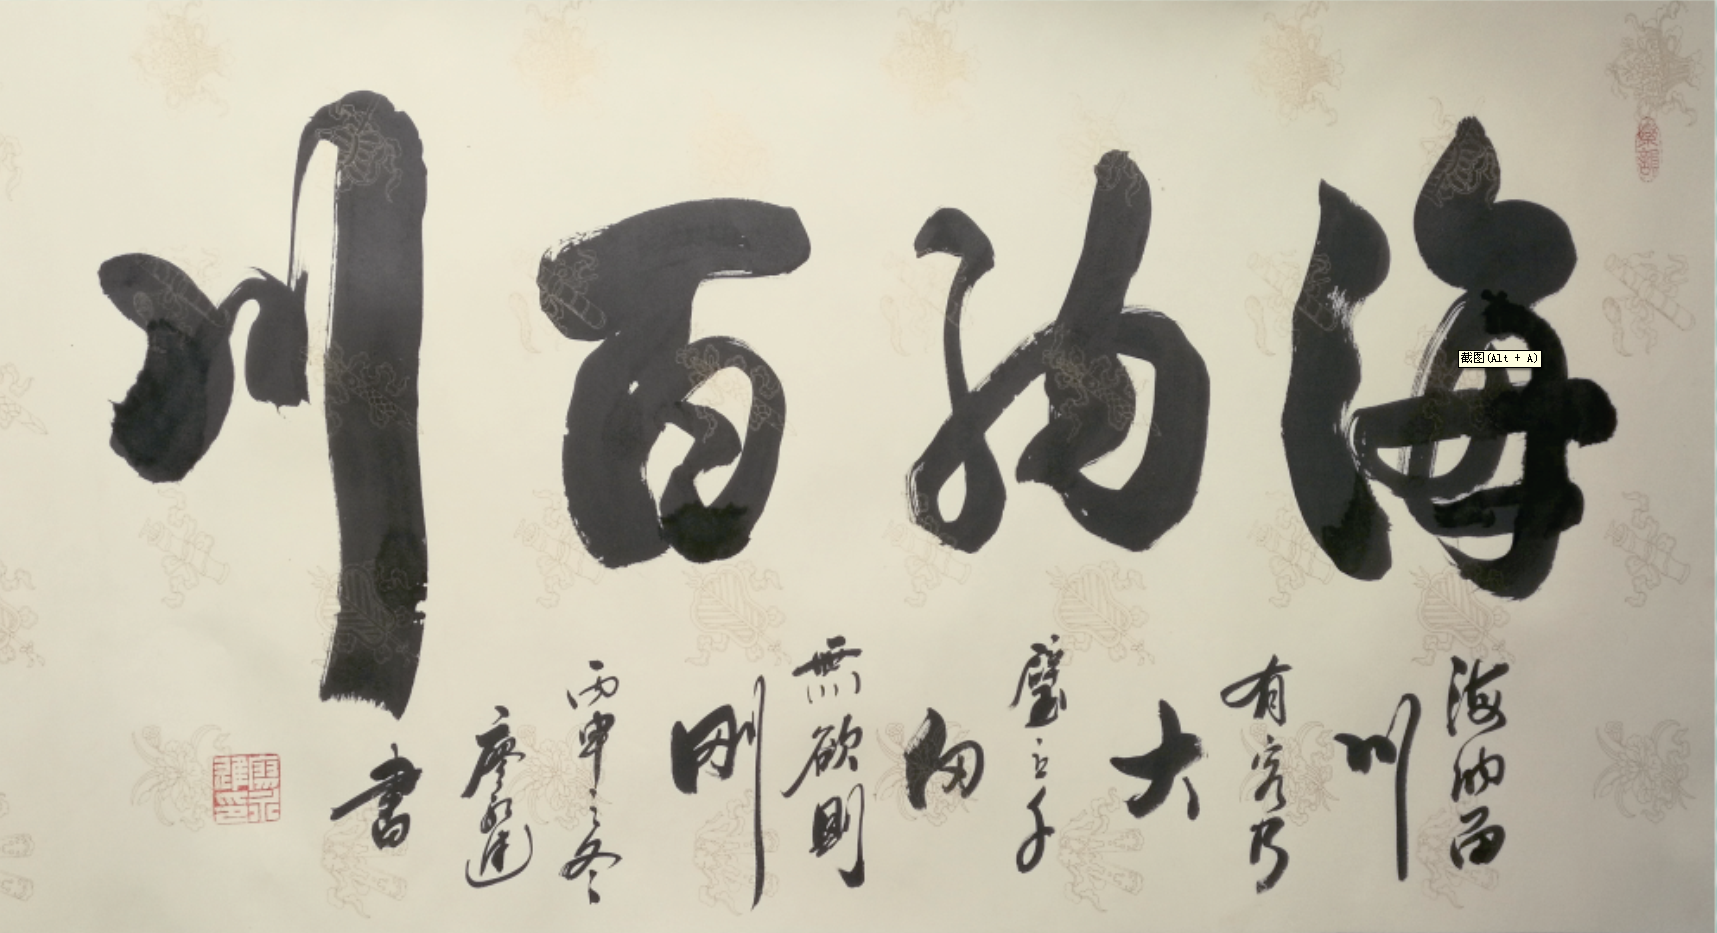 海納百川
海納百
川
有容乃
大
壁立千
仞
無欲則
剛
丙申之冬
廖
書
截图(Alt + A)